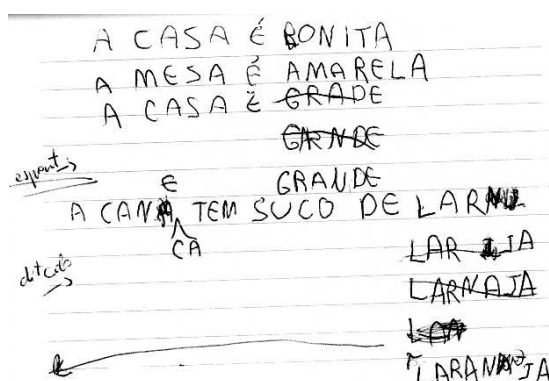 A CASA É BONITA
A MESA É AMARELA
A CASA É GRADE
GARNDE
GRANDE
espont.
E
A CANA TEM SUCO DE LAR
CA
LAR JA
ditado
LARNAJA
LARANJA